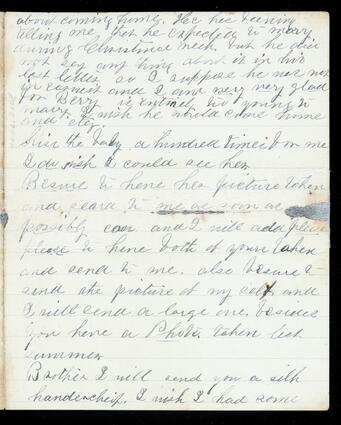 about coming home. He has been
telling me that he expected to marry
during Christmas week but he did
not say any thing about it in his
last letter so I suppose he was not
in earnest and I am very very glad
for Berry is entirely too young to
marry. I wish he would come home
and stay.
Kiss the baby a hundred times for me
I do wish I could see her.
Be sure to have her picture taken
and send to me as soon as
possibly can and I will add please
please to have both of yours taken
and send to me. also be sure to
send the picture of my self and
I will send a large one. besides
you have a Photo. taken last
summer
Brother I will send you a silk
handercheif. I wish I had some